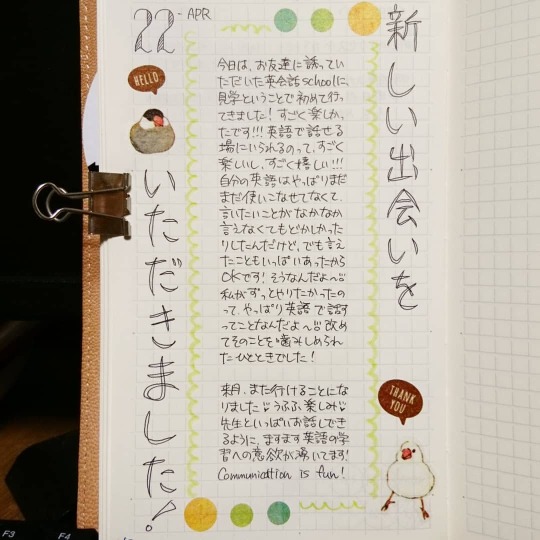 22-APR
新しい出会いを
いただきました!
HELLO
今日は、お友達に誘ってい
ただいた英会話schoolに、
見学ということで初めて行っ
てきました!すごく楽しかっ
たです!!!英語で話せる
場にいられるのって、すごく
楽しいし、すごく嬉しい!!!
自分の英語はやっぱりまだ
まだ使いこなせてなくて、
言いたいことがなかなか
言えなくてもどかしかった
りしたんだけど、でも言え
たこともいっぱいあったから
OKです!そうなんだよ〜
私がずっとやりたかったの
って、やっぱり英語で話す
ってことなんだよ〜改め
てそのことを噛みしめられ
たひとときでした!
来月、また行けることにな
りました うふふ楽しみ
先生といっぱいお話しでき
るように、ますます英語の学
習への意欲が湧いてます!
Communication is fun!
THANK
YOU
F3
F4